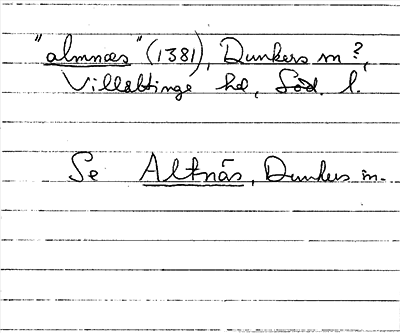 "almnæs" (1381), Dunkers sn?,
Villåttinge hd, Söd. l.
Se Altnäs, Dunkers sn.